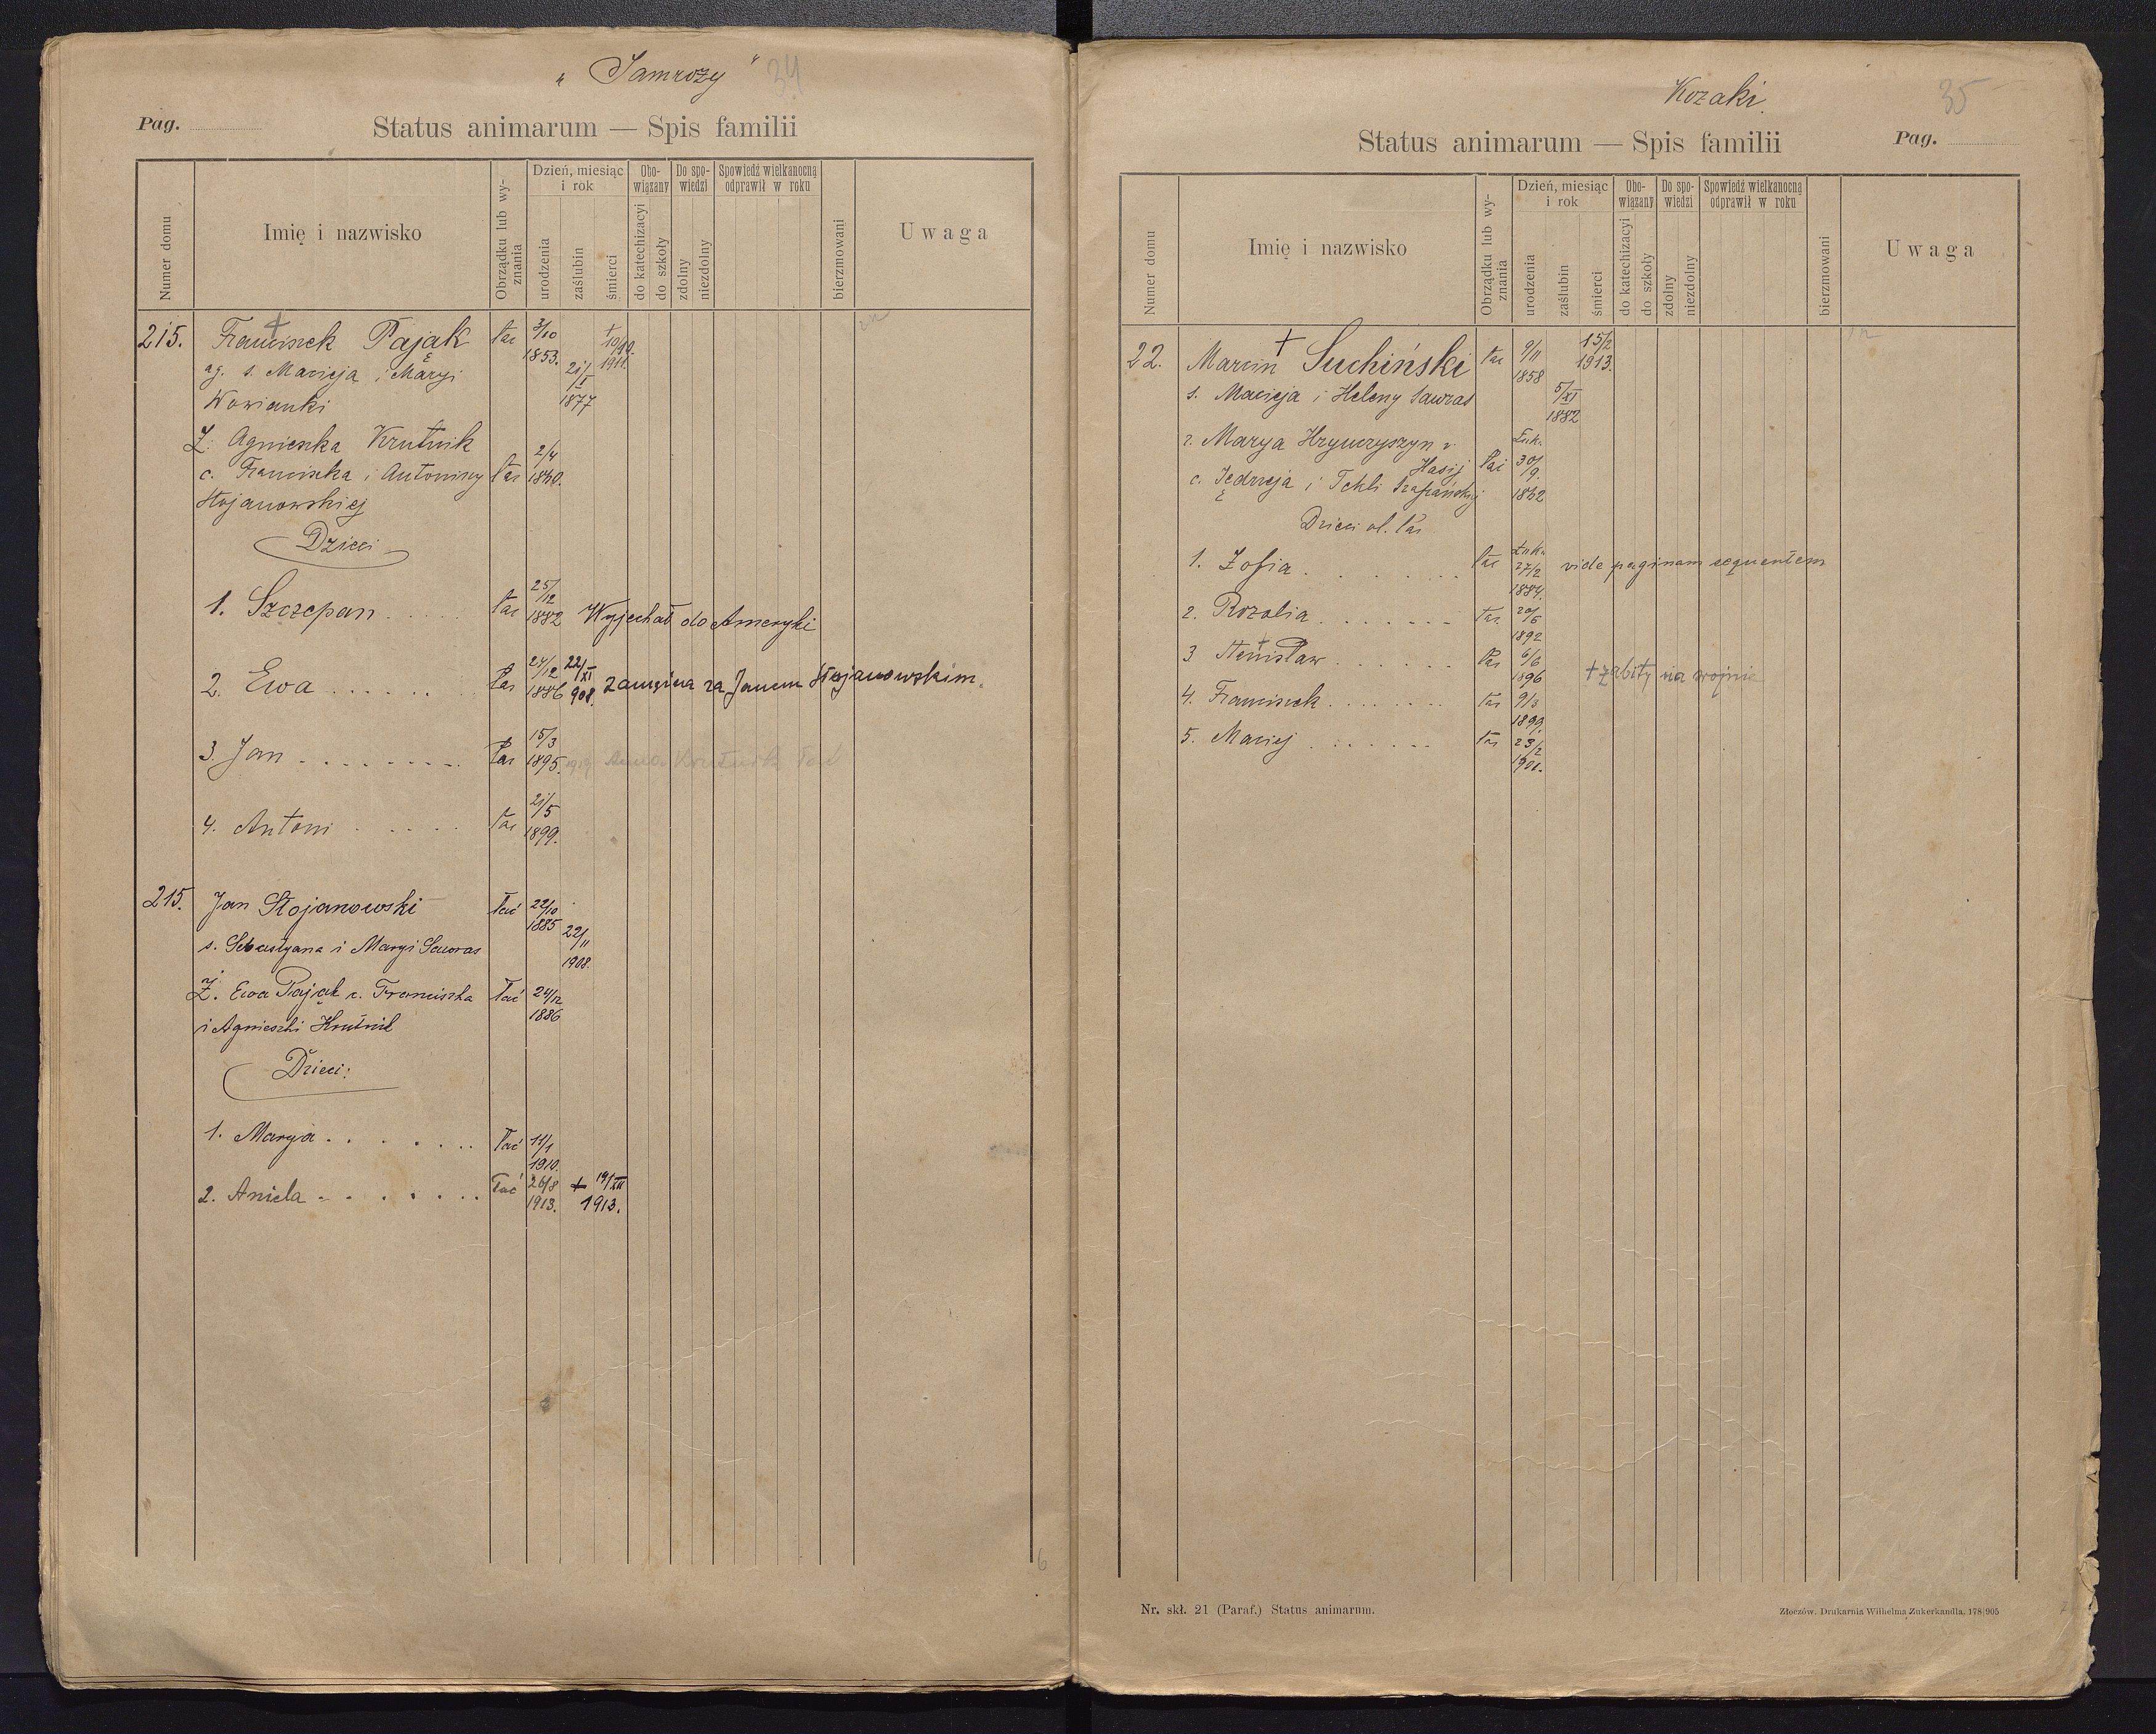 „ Jamrozy " 34
Pag.
Status animarum — Spis familii
Numer domu
Imię i nazwisko
Obrządku lub wyznania
Dzień, miesiąc i rok
urodzenia
zaślubin
śmierci
Obowiązany
do katechizacyi
do szkoły
Do spowiedzi
zdolny
niezdolny
Spowiedź wielkanocną odprawił w roku
bierzmowani
Uwaga
215. Franciszek Pająk łac 3/10 1853. + 10/10. 1911.
ag. s. Macieja i Maryi 21/I 1877
Wowianki
Ż. Agnieszka Krutnik
c. Franciszka i Antoniny łac 2/4 1860.
Stojanowskiej
Dzieci
1. Szczepan łac 25/12 1882 Wyjechał do Ameryki
2. Ewa łac 24/12 1886 22/XI 908. zamężna za Janem Stojanowskim.
3. Jan łac 15/3 1895. 1919 Anna Krutnik
4. Antoni łac 21/5 1899.
215. Jan Stojanowski łać 22/10 1885 22/11 1908.
s. Sebastyana i Maryi Sawras
Ż. Ewa Pająk c. Franciszka łać 24/12 1886
i Agnieszki Krutnik
Dzieci:
1. Marya łać 11/1 1910.
2. Aniela łać 26/8 1913. + 19/XII 1913.
6
Kozaki 35
Status animarum — Spis familii
Pag.
Numer domu
Imię i nazwisko
Obrządku lub wyznania
Dzień, miesiąc i rok
urodzenia
zaślubin
śmierci
Obowiązany
do katechizacyi
do szkoły
Do spowiedzi
zdolny
niezdolny
Spowiedź wielkanocną odprawił w roku
bierzmowani
Uwaga
22. Marcin + Suchiński łac 9/11 1858 15/2 1913.
s. Macieja i Heleny Sawras 5/XI 1882
ż. Marya Hrynczyszyn v. Hasij łac 30/9. 1862
c. Jędrzeja i Tekli
Dzieci ol. łac
1. Zofia łac 27/2 1884. vide paginam sequentem
2. Rozalia łac 20/5 1892
3 Stanisław łac 6/6 1896 + zabity na wojnie
4. Franciszek łac 9/3 1899.
5. Maciej łac 23/2 1901.
Nr. skł. 21 (Paraf.) Status animarum.
Złoczów. Drukarnia Wilhelma Zukerkandla. 178|905